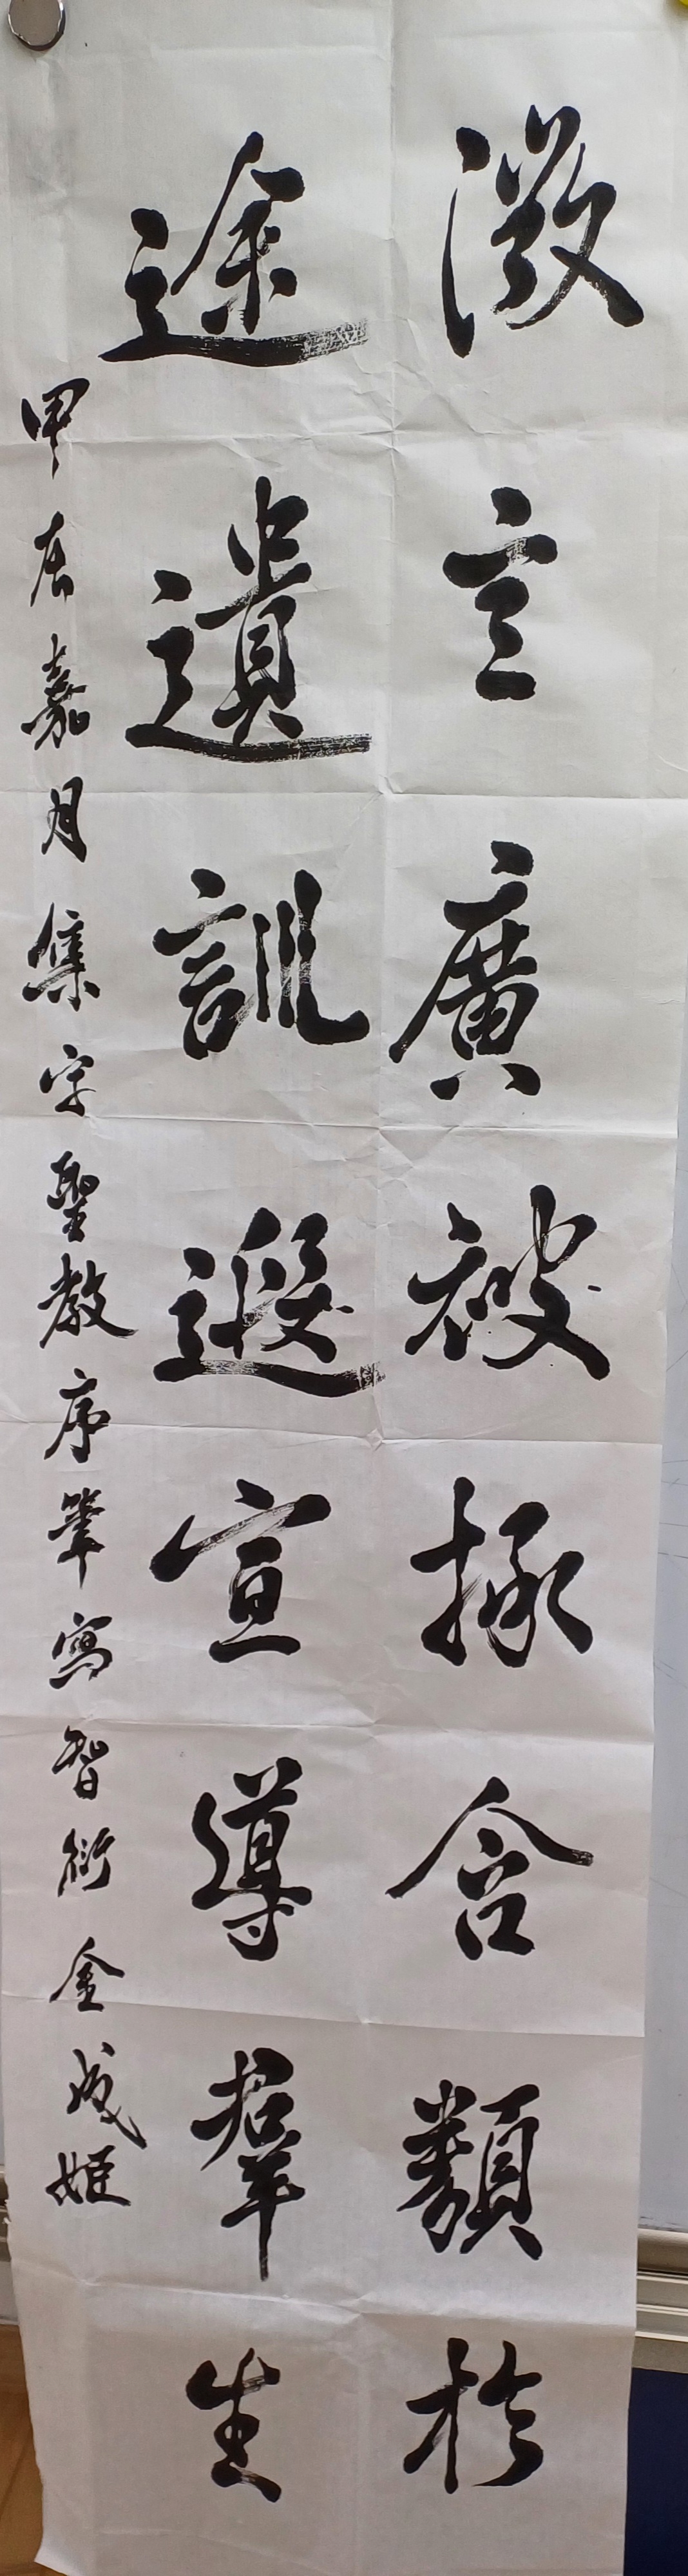 微言廣被拯含類於
途遺訓遐宣導群生
甲辰嘉月集字聖教序筆寫智衍金成姬